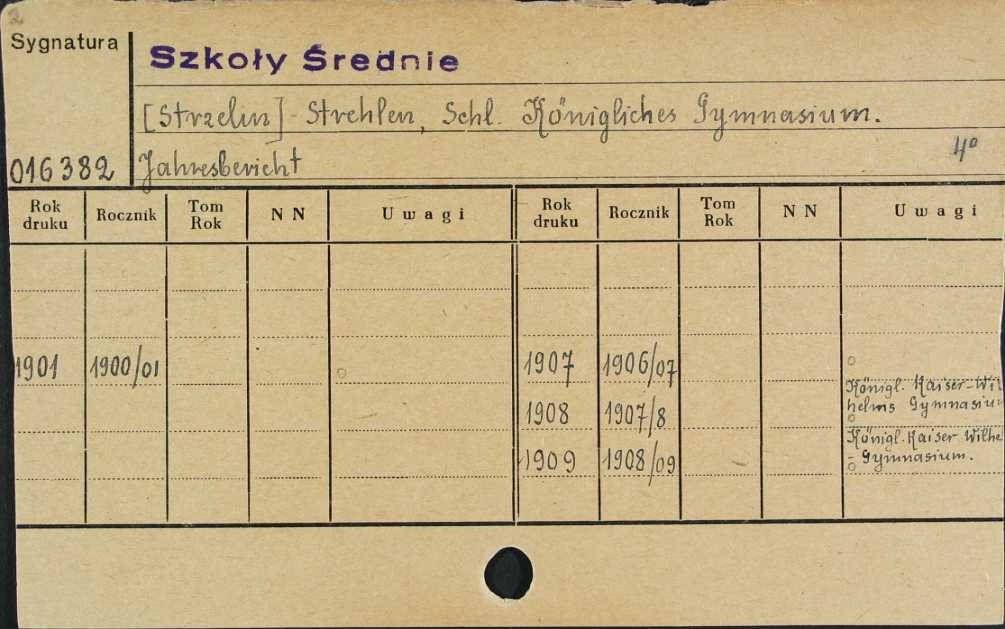 2
Sygnatura
Szkoły Średnie
[Strzelin] - Strehlen, Schl. Königliches Gymnasium.
016382 Jahresbericht 4°
Rok druku Rocznik Tom Rok NN Uwagi Rok druku Rocznik Tom Rok NN Uwagi
1901 1900/01 1907 1906/07
1908 1907/8 Königl. Kaiser-Wil
helms Gymnasiu
1909 1908/09 Königl. Kaiser Wilhe
- Gymnasium.